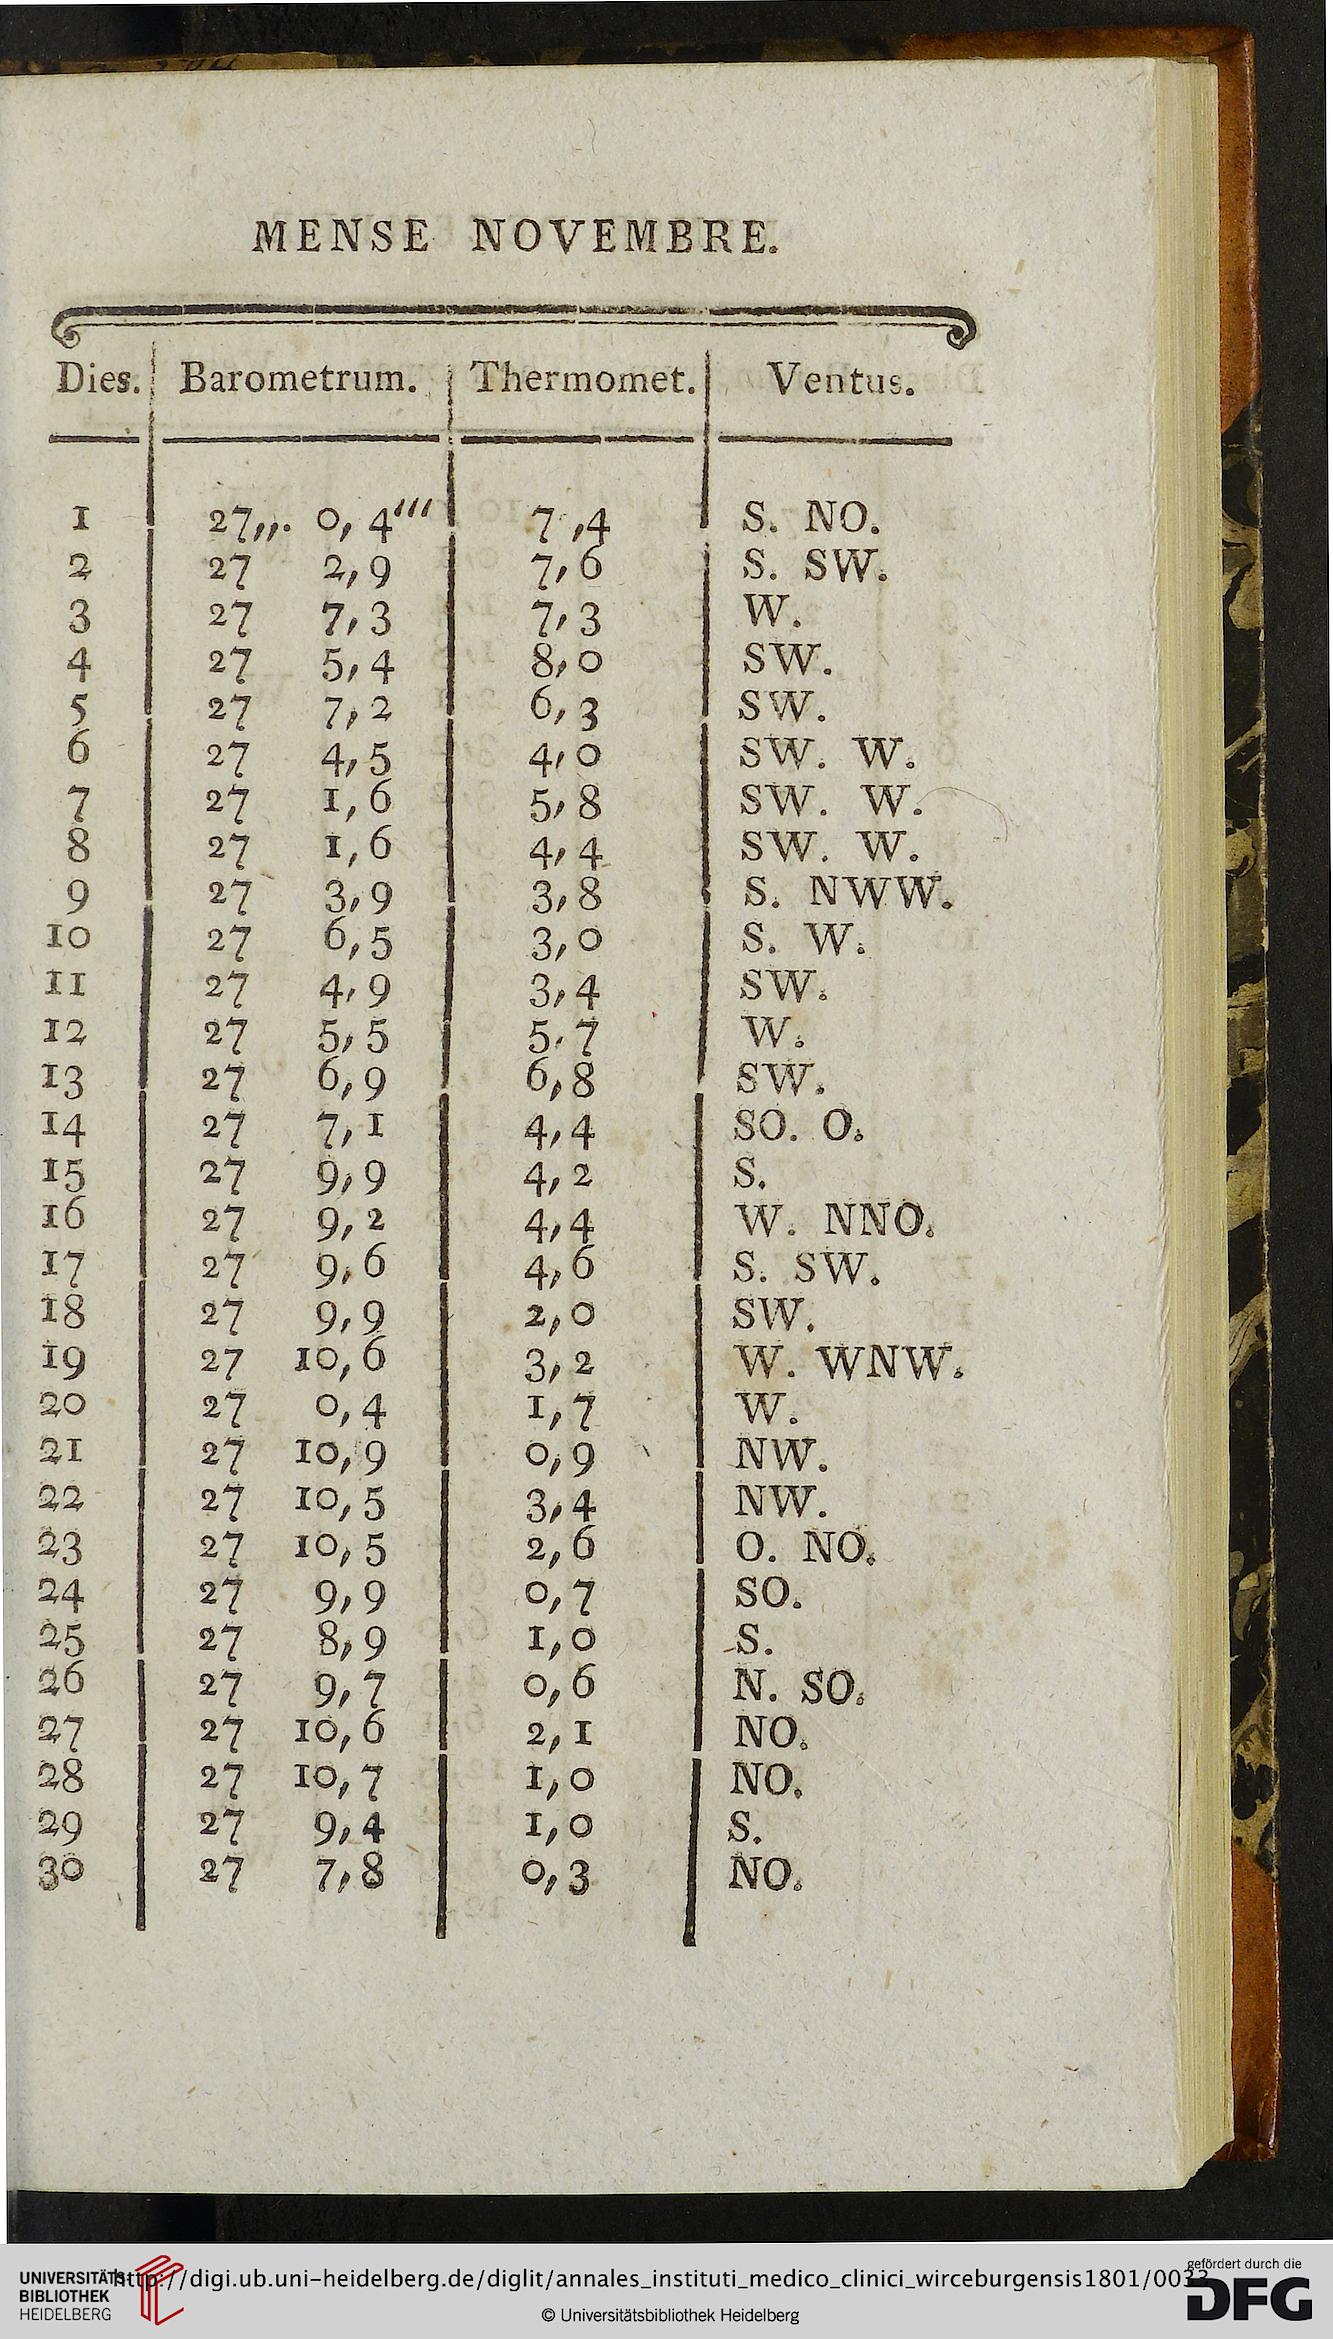 MENSE NOVEMBRE.
Dies. Barometrum. Thermomet. Ventus.
1 27,,. 0, 4''' 7 ,4 S. NO.
2 27 2,9 7,6 S. SW.
3 27 7,3 7,3 W.
4 27 5,4 8,0 SW.
5 27 7,2 6,3 SW.
6 27 4,5 4,0 SW. W.
7 27 1,6 5,8 SW. W.
8 27 1,6 4,4 SW. W.
9 27 3,9 3,8 S. NWW.
10 27 6,5 3,0 S. W.
11 27 4,9 3,4 SW.
12 27 5,5 5,7 W.
13 27 6,9 6,8 SW.
14 27 7,1 4,4 SO. O.
15 27 9,9 4,2 S.
16 27 9,2 4,4 W. NNO.
17 27 9,6 4,6 S. SW.
18 27 9,9 2,0 SW.
19 27 10,6 3,2 W. WNW.
20 27 0,4 1,7 W.
21 27 10,9 0,9 NW.
22 27 10,5 3,4 NW.
23 27 10,5 2,6 O. NO.
24 27 9,9 0,7 SO.
25 27 8,9 1,0 S.
26 27 9,7 0,6 N. SO.
27 27 10,6 2,1 NO.
28 27 10,7 1,0 NO.
29 27 9,4 1,0 S.
30 27 7,8 0,3 NO.
UNIVERSITÄTS-
BIBLIOTHEK
HEIDELBERG
http://digi.ub.uni-heidelberg.de/diglit/annales_instituti_medico_clinici_wirceburgensis1801/0033
© Universitätsbibliothek Heidelberg
gefördert durch die
DFG